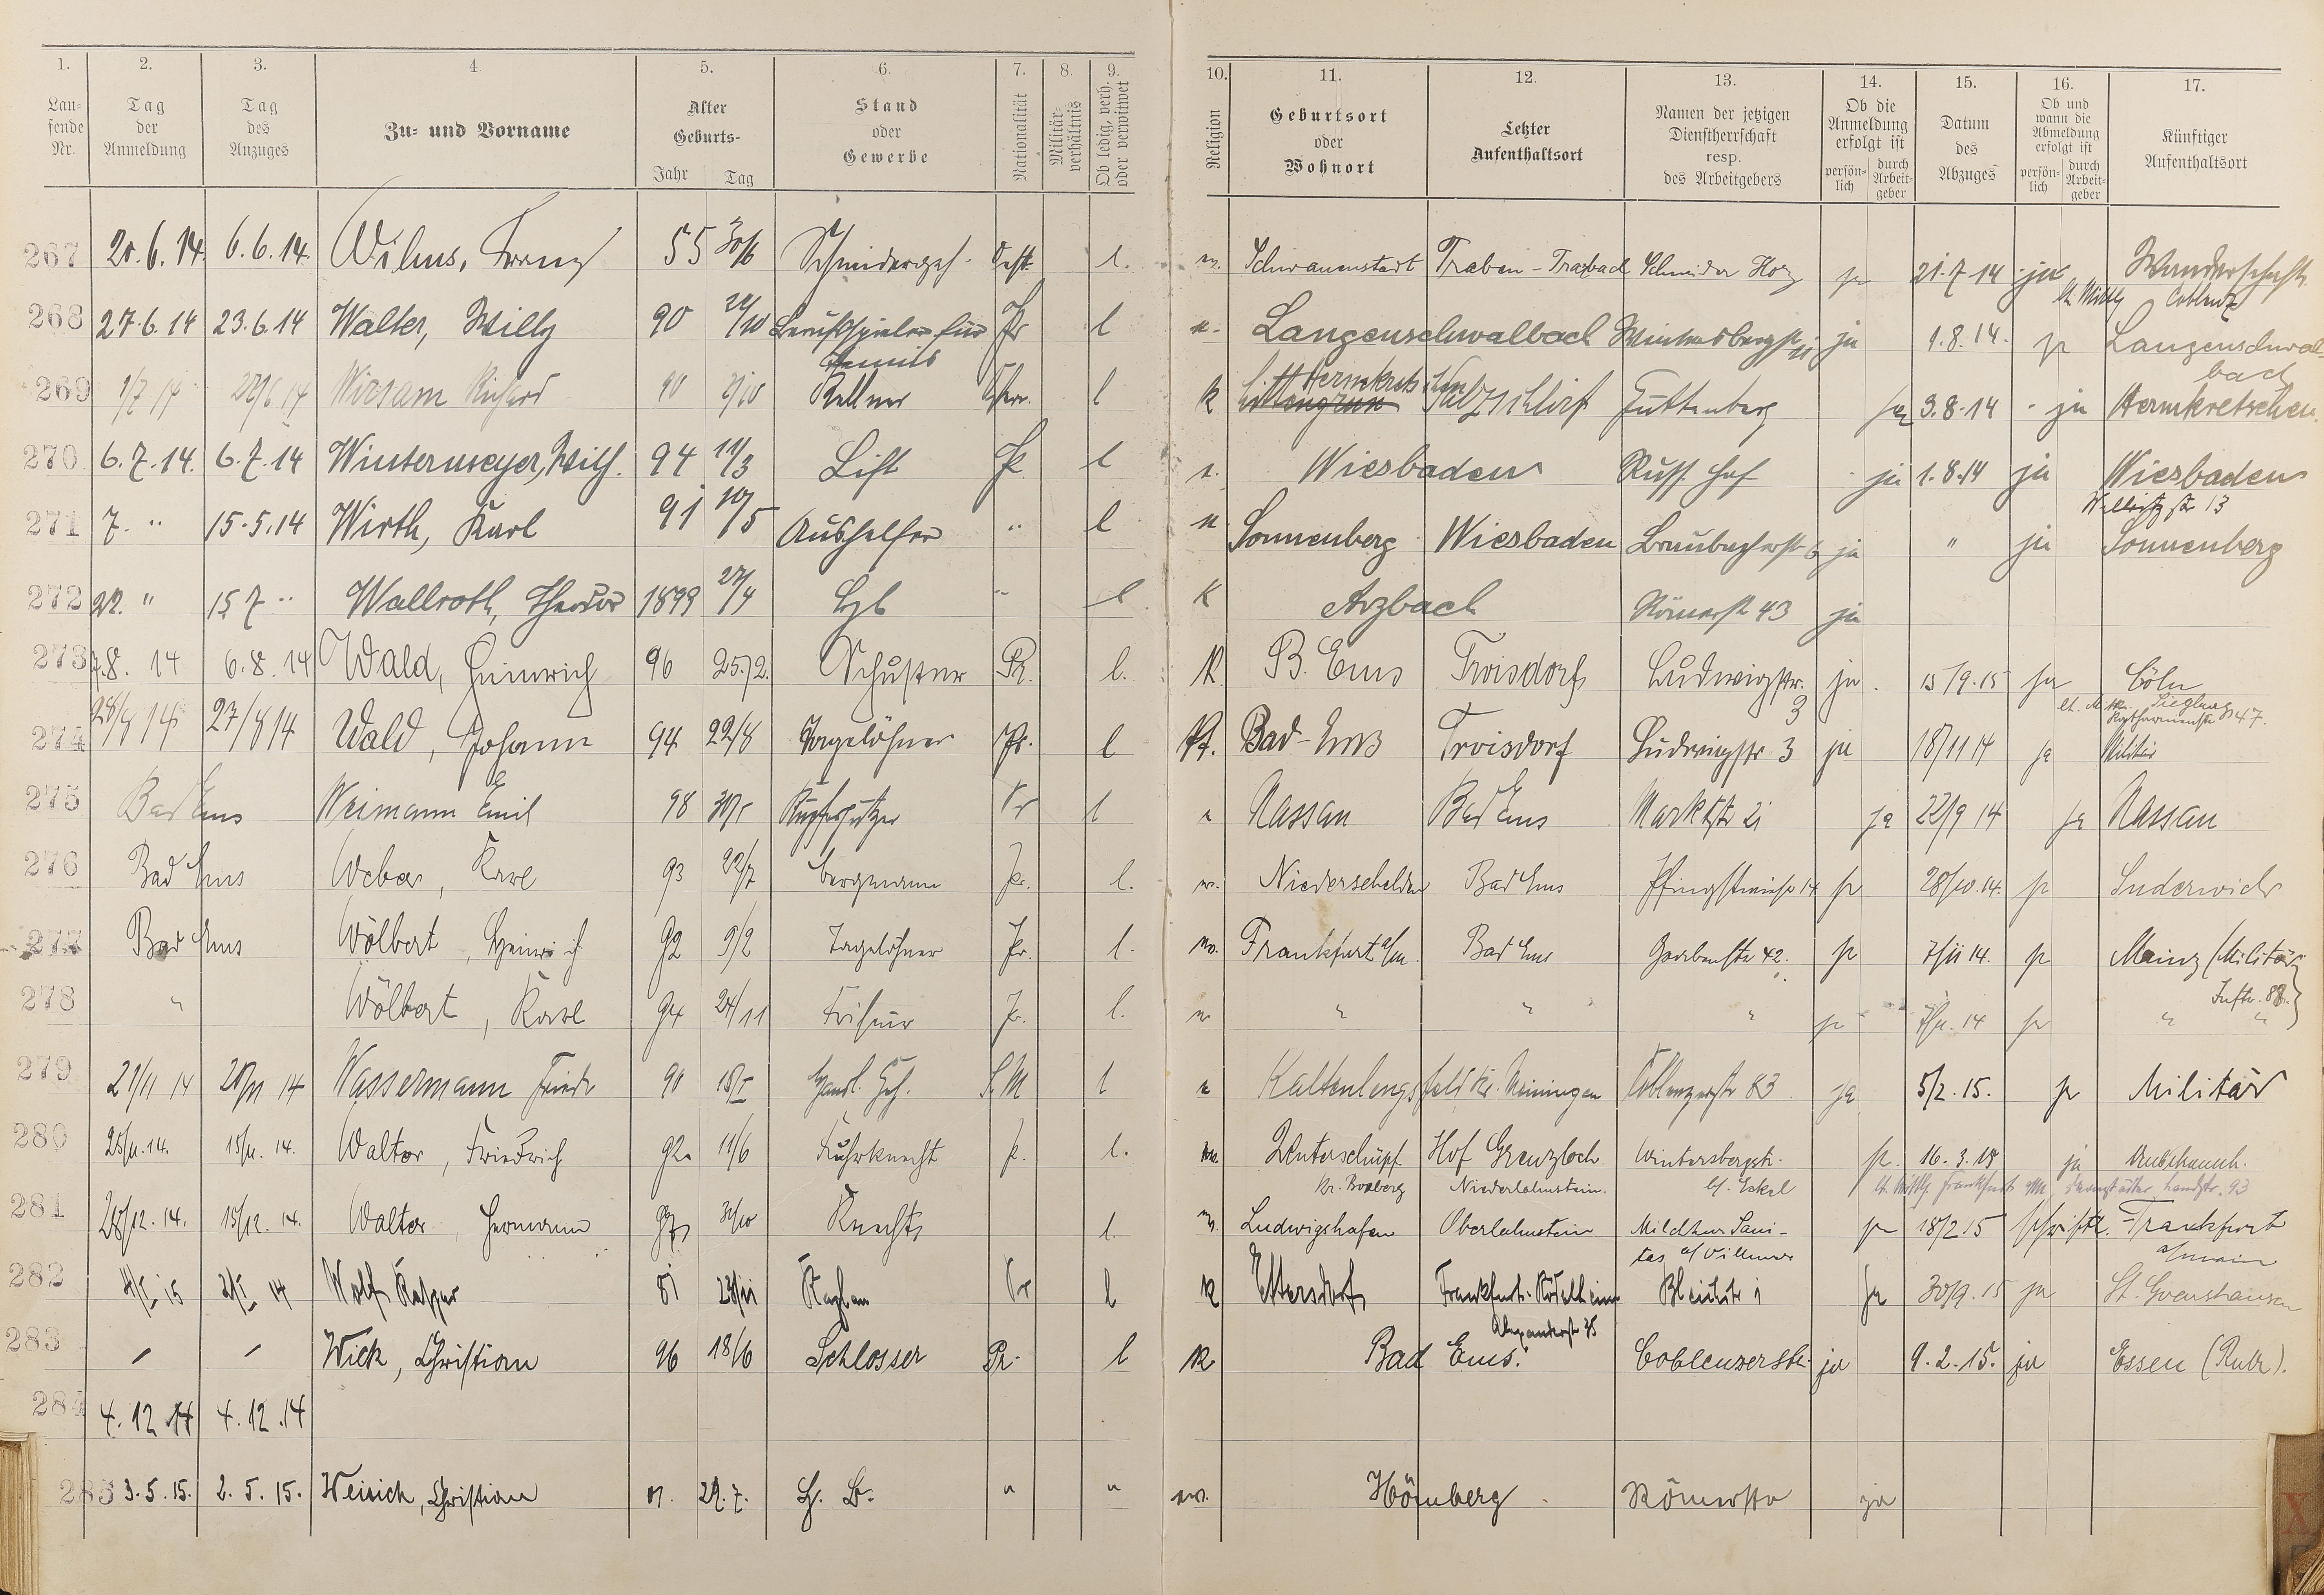 1. 2. 3. 4. 5. 6. 7. 8. 9. 10. 11. 12. 13. 14. 15. 16. 17.
Lau-
fende
Nr.
Tag
der
Anmeldung
Tag
des
Anzuges
Zu- und Vorname
Alter
Geburts-
Jahr Tag
Stand
oder
Gewerbe
Nationalität
Militär-
verhältnis
Ob ledig, verh.
oder verwitwet
Religion
Geburtsort
oder
Wohnort
Letzter
Aufenthaltsort
Namen der jetzigen
Dienstherrschaft
resp.
des Arbeitgebers
Ob die
Anmeldung
erfolgt ist
persön-
lich
durch
Arbeit-
geber
Datum
des
Abzuges
Ob und
wann die
Abmeldung
erfolgt ist
persön-
lich
durch
Arbeit-
geber
Künftiger
Aufenthaltsort
267 20.6.14. 6.6.14. Wilms, Franz 55 30/6 Schneidergeh. Östr. l. Schwanenstadt Traben-Trarbach Schneider ja 21.7.14 ja Wanderschaft
Coblenz
268 27.6.14 23.6.14 Walter, Willy 90 /10 Berufsspieler für Pr l Langenschwalbach Wintersbergstr 11 ja 1.8.14. ja Langenschwal-
Tennis
bach
269 1/7 14 27/6 14 Wirsam Richard 90 Kellner l k Salzschlirf Guttenberg ja 3.8.14 ja Hernskretschen
270 6.7.14. 6.7.14 Wintermeyer, Wilh. 94 11/3 Lift Pr l Wiesbaden Russ. Hof ja 1.8.14 ja Wiesbaden
13
271 7. " 15.5.14 Wirth, Karl 91 10/5 Aushelfer " l Sonnenberg Wiesbaden Braubacherstr 6 ja " ja Sonnenberg
272 22. " 15 7 " Wallroth, Theodor 1899 27/4 " l k Arzbach Römerstr 43 ja
273 7.8. 14 6.8.14 Wald, Heinrich 96 25./2. Schuster Pr. l. K. B. Ems Troisdorf Ludwigstr. ja 15/9.15 ja Cöln
3
Siegburg
47.
274 28/8 14 27/8 14 Wald, Johann 94 22/8 Tagelöhner Pr. l Kt. Bad-Ems Troisdorf Ludwigstr 3 ja 18/11 14 ja Militär
275 Bad Ems Weimann Emil 98 Kupferputzer Pr l Nassau Bad Ems Marktstr 21 ja 22/9 14 ja Nassau
276 Bad Ems Weber, Karl 93 22/7 Bergmann Pr. l. Niederschelden Bad Ems Pfingstwiese 14 ja 28/10.14. ja Suderwich
277 Bad Ems Wölbert, Heinrich 92 9/2 Tagelöhner Pr. l. Frankfurt a/m. Bad Ems Grabenstr 42. ja 7/11 14. ja Mainz (Militär
Inftr. 88.)
278 " Wölbert, Karl 94 24/11 Friseur Pr. l. " " " ja 7/11.14 ja " "
279 21/11 14 20/11 14 Wassermann Friedr 90 Handl. Geh. S.M l Kaltenlengsfeld Kr. Meiningen Coblenzerstr 83 ja 5/2.15. ja Militär
280 25/11.14. 15/11.14. Walter, Friedrich 92. 11/6 Fuhrknecht P. l. Unterschüpf Hof Grenzloch Wintersbergstr. ja. 16.3.15 ja
Kr. Boxberg Niederlahnstein. b/. Eckel
281 28/12.14. 15/12.14. Walter, Hermann Knecht l. Ludwigshafen Oberlahnstein Milchkur Sani- ja 18/2 15 schriftl. Frankfurt
tas a/main
282 4/I 15 Wolf Kaspar 81 Kaplan Pr l k Ettersdorf Frankfurt-Rödelheim Bleichstr 1 ja 30/9.15 ja St. Goarshausen
Alexanderstr 25
283 / / Wick, Christian 96 18/6 Schlosser Pr. l k Bad Ems. Coblenzerstr. ja 9.2.15. ja Essen (Ruhr).
284 4.12 14 4.12.14
285 3.5.15. 2.5.15. Weisich, Christian 29.7. " " Hömberg Römerstr ja